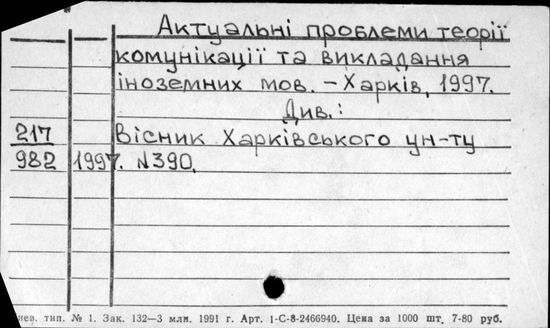 Актуальні проблеми теорії
комунікації та викладання
іноземних мов. – Харків, 1997.
Див.:
217 Вісник Харківського ун-ту
982 1997. N390.
тип. № 1. Зак. 132—3 млн. 1991 г. Арт. 1-С-8-2466940. Цена за 1000 шт. 7-80 руб.